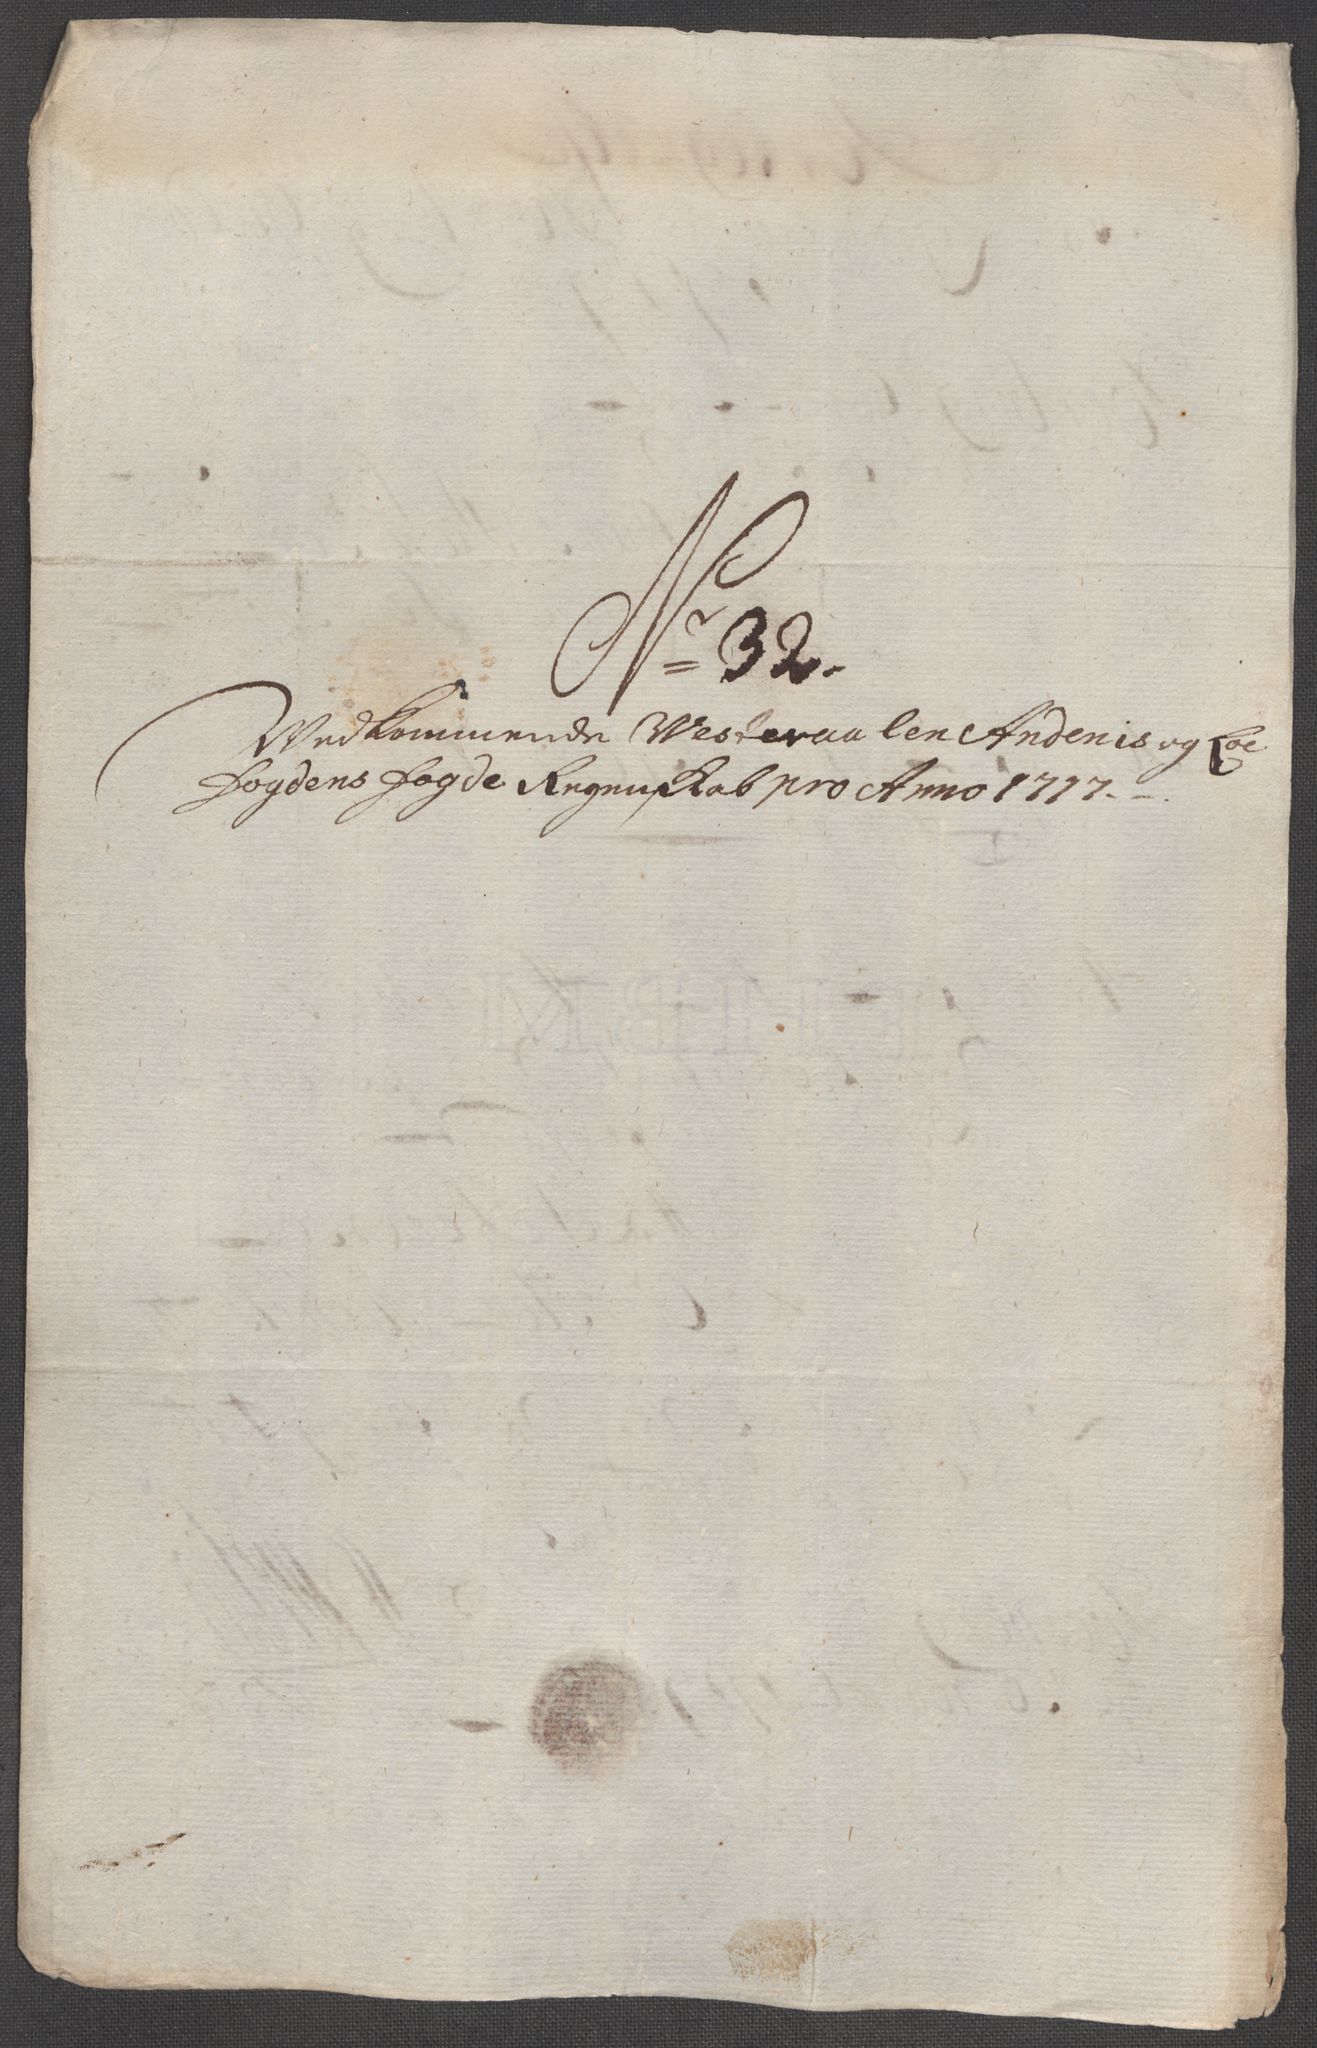 Nr 32.
Vedkommende Westeraalen Andenis og Loe
fogdens fogde Regnskab pro Anno 1717.